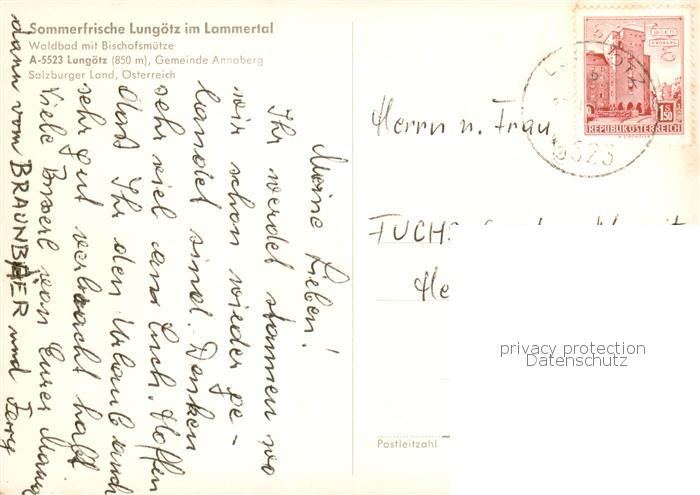 Sommerfrische Lungötz im Lammertal
Waldbad mit Bischofsmütze
A-5523 Lungötz (850 m), Gemeinde Annaberg
Salzburger Land, Österreich
Meine Lieben!
Ihr werdet staunen wo
wir schon wieder ge-
landet sind. Denken
sehr viel an Euch. Hoffen
daß Ihr den Urlaub auch
sehr gut verbracht habt
Viele Busserl von Eurer
dann vom BRAUNBÄER und Ferry
WIEN
ERDBERG
1S50
REPUBLIK ÖSTERREICH
5523
Herrn u. Frau
FUCHS
He
privacy protection
Datenschutz
Postleitzahl